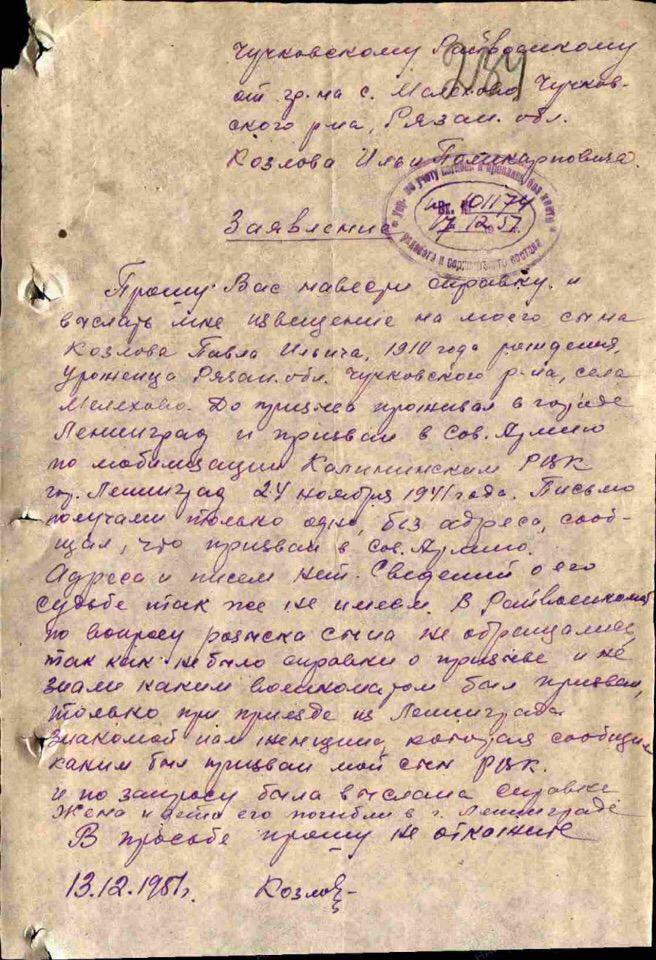 Чучковскому Райвоенкому
234
от гр-на с. Мелехово, Чучков-
ского р-на, Рязан. обл.
Козлова Ильи Поликарповича.
Упр. по учету погибш. и пропавш. без вести
Вх. № 101174
17.12.51.
рядового и сержантского состава
Заявление
Прошу Вас навести справку и
выслать мне извещение на моего сына
Козлова Павла Ильича, 1910 года рождения,
уроженца Рязан. обл. Чучковского р-на, села
Мелехово. До призыва проживал в городе
Ленинград и призван в Сов. Армию
по мобилизации Калининским РВК
гор. Ленинград 24 ноября 1941 года. Письмо
получали только одно, без адреса, сооб-
щал, что призван в Сов. Армию.
Адреса и писем нет. Сведений о его
судьбе так же не имеем. В Райвоенкомат
по вопросу розыска сына не обращались,
так как не было справки о призыве и не
знали каким военкоматом был призван,
только при приезде из Ленинграда
знакомой нам женщины, которая сообщила
каким был призван мой сын РВК.
и по запросу была выслана справка
Жена и дети его погибли в г. Ленинграде
В просьбе прошу не отказать
13.12.1951г. Козлов